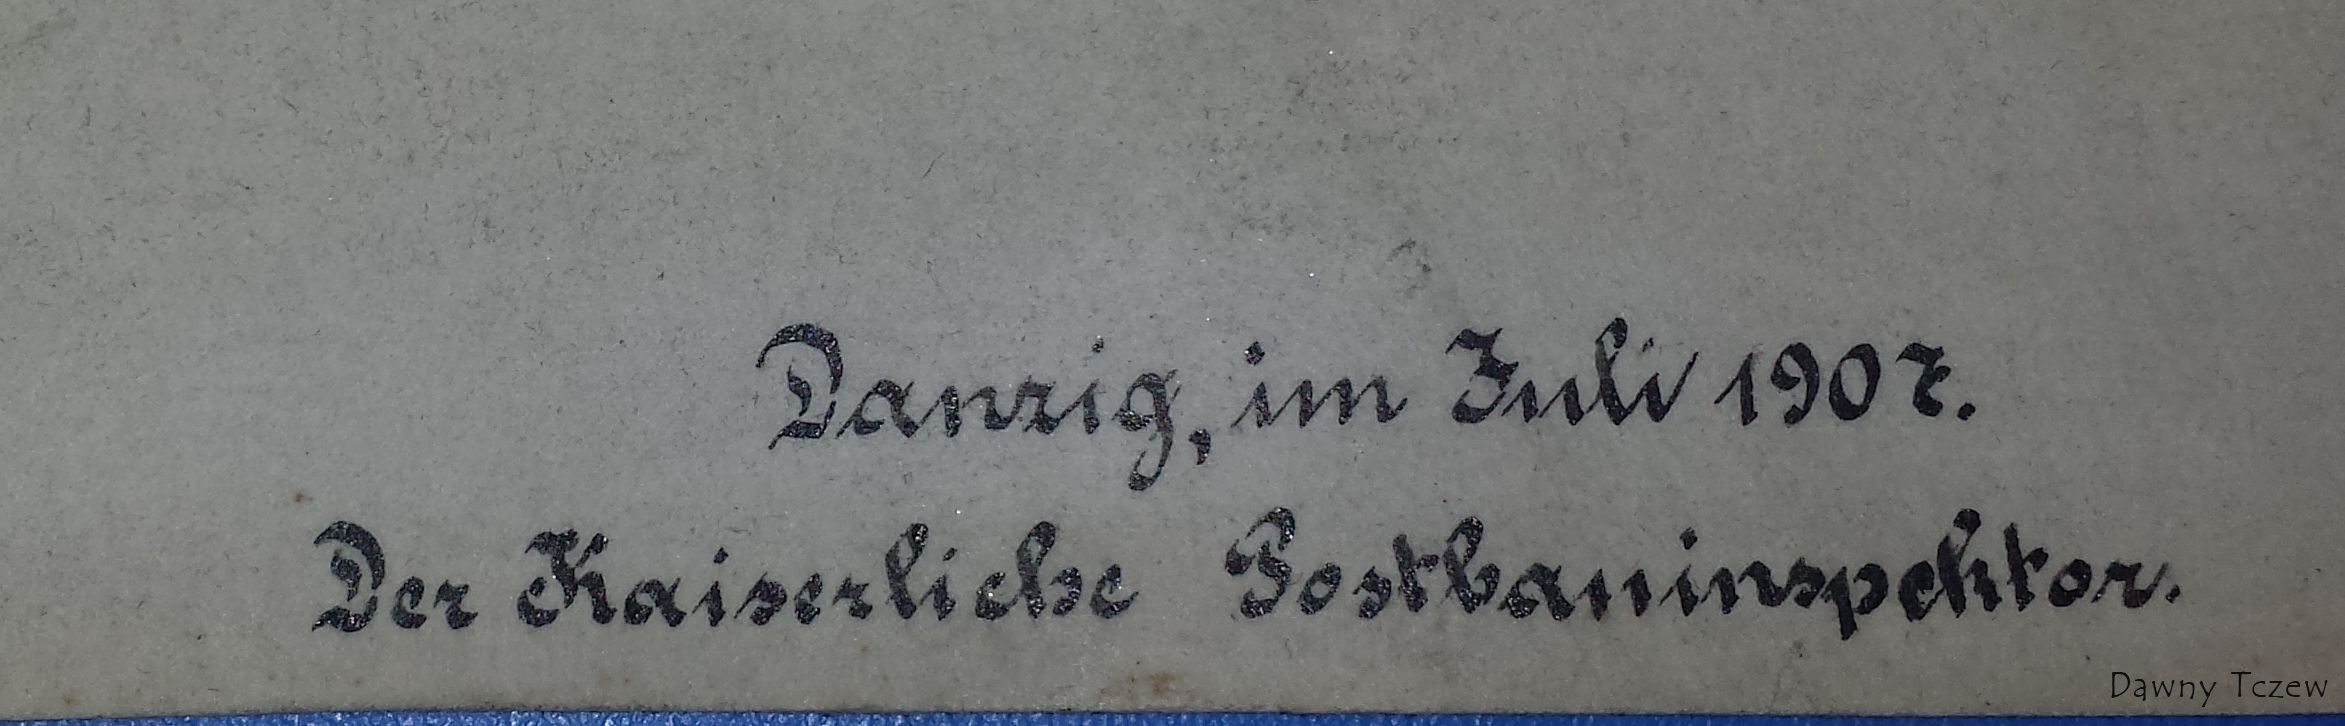 Danzig, im Juli 1907.
Der Kaiserliche Postbauinspektor.
Dawny Tczew